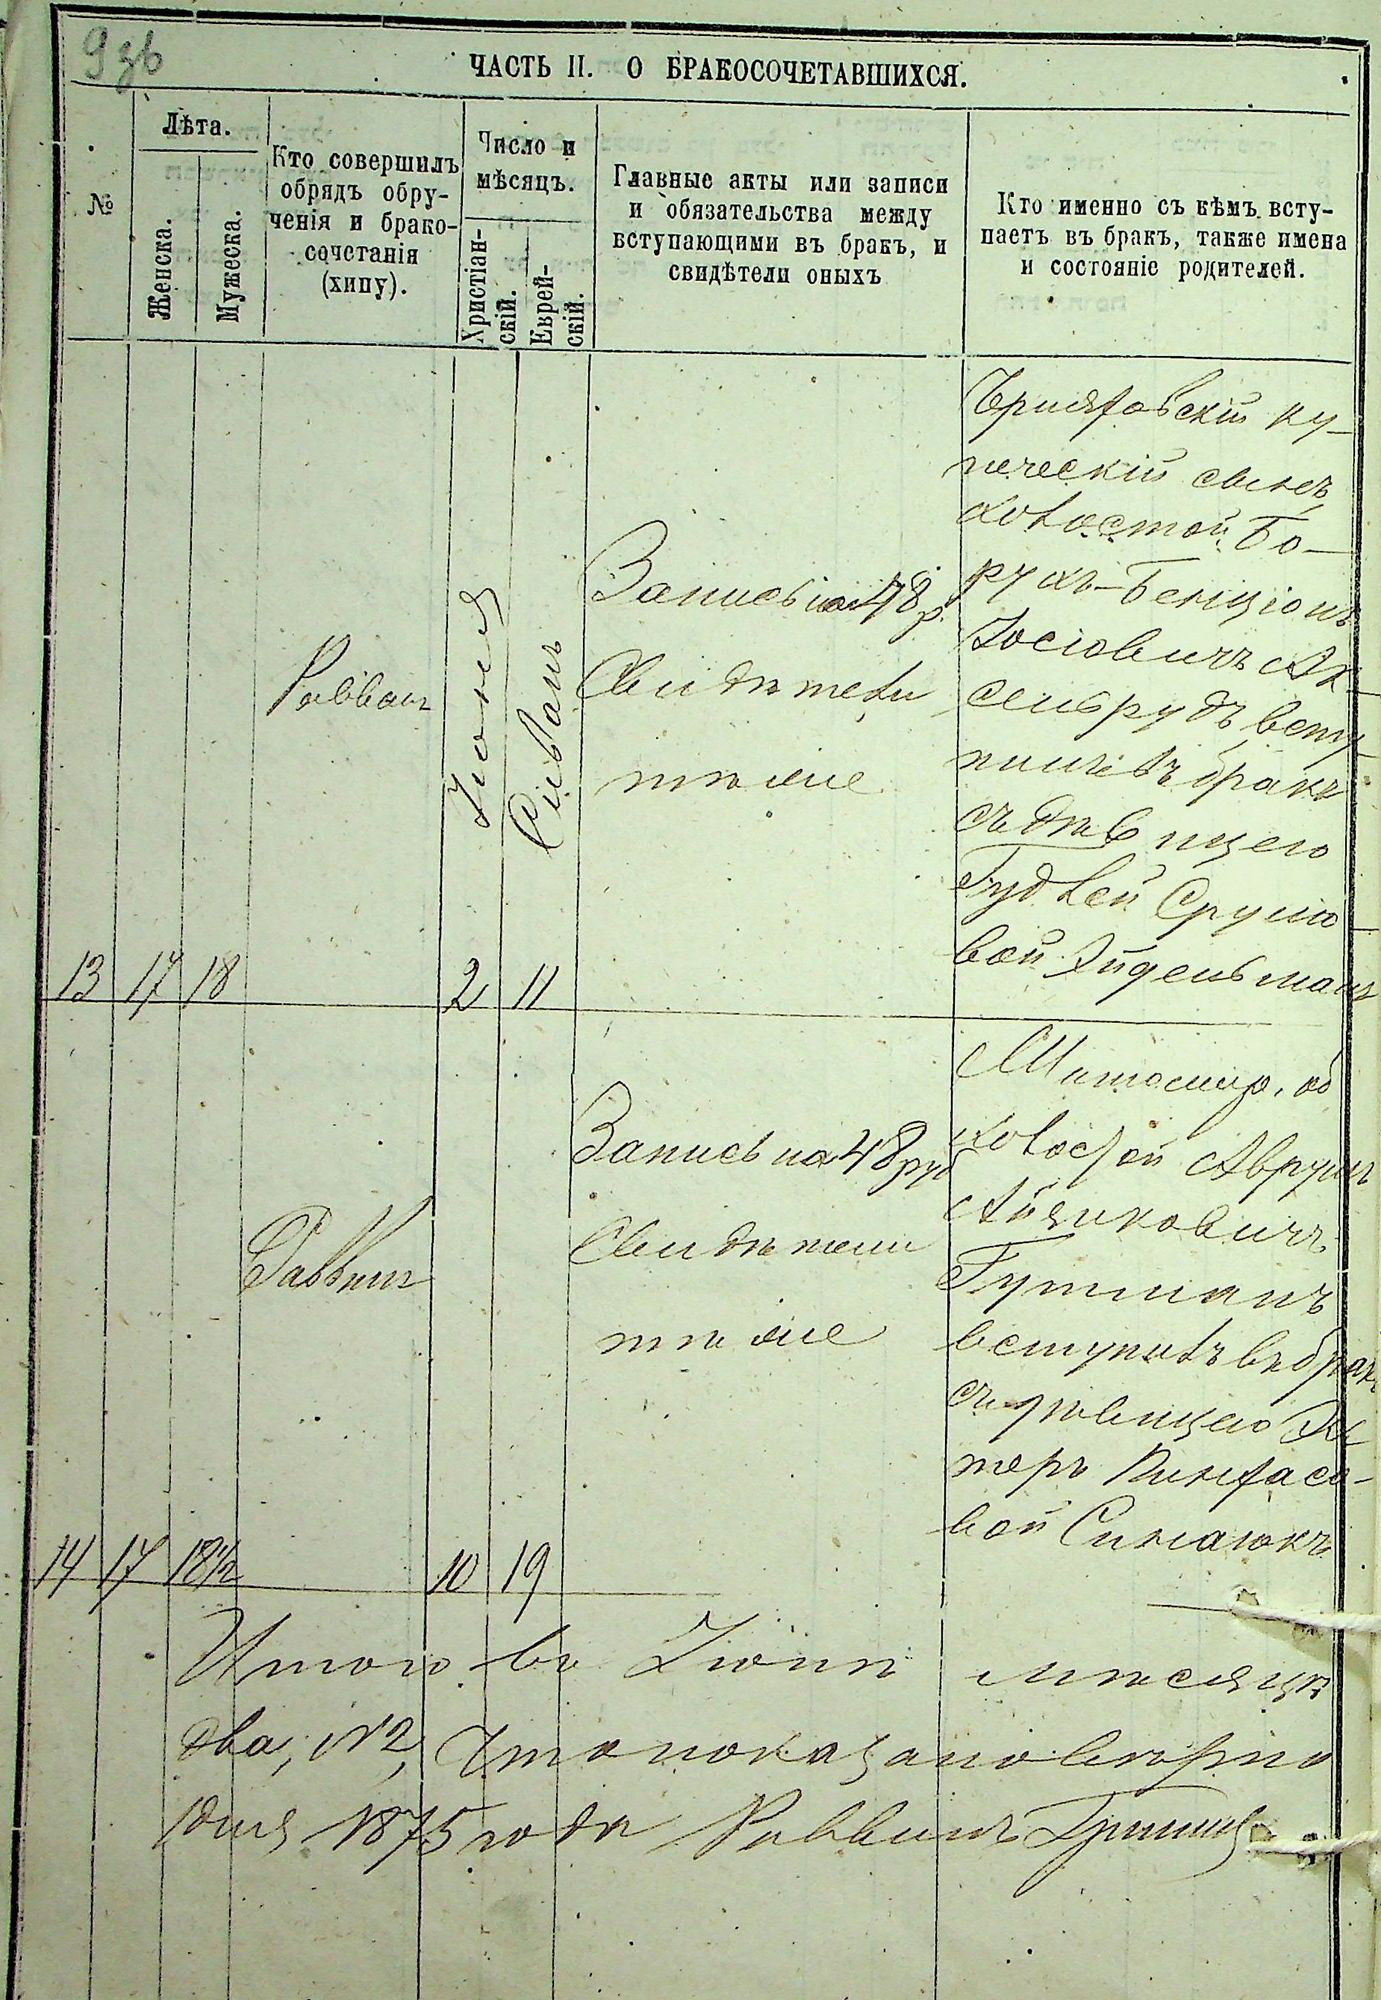 9 зв
ЧАСТЬ II. О БРАКОСОЧЕТАВШИХСЯ.
№
Лѣта.
Женска.
Мужеска.
Кто совершилъ
обрядъ обру-
ченія и брако-
сочетанія
(хипу).
Число и
мѣсяцъ.
Христіан-
скій.
Еврей-
скій.
Главные акты или записи
и обязательства между
вступающими въ бракъ, и
свидѣтели оныхъ
Кто именно съ кѣмъ всту-
паетъ въ бракъ, также имена
и состояніе родителей.
13
17
18
Раввинъ
Іюня
2
Сиванъ
11
Запись на 48 р.
Свидѣтели
тѣ же
ку-
печескій сынъ
холостой Бо-
рухъ-Бенціонъ
Іосіовичъ Ак-
сельрудъ всту-
пилъ въ бракъ
съ дѣвицею
Гудлей Срумо-
вой Эйдельманъ
14
17
18½
Раввинъ
10
19
Запись на 48 руб
Свидѣтели
тѣ же
холостой Аврумъ
Айзиковичъ
Гутманъ
вступилъ въ бракъ
съ дѣвицею Эс-
теръ Пинхасо-
вой Синаюкъ
Итого въ Іюнѣ мѣсяцѣ
два, №2, Что показано вѣрно
1875 года Раввинъ